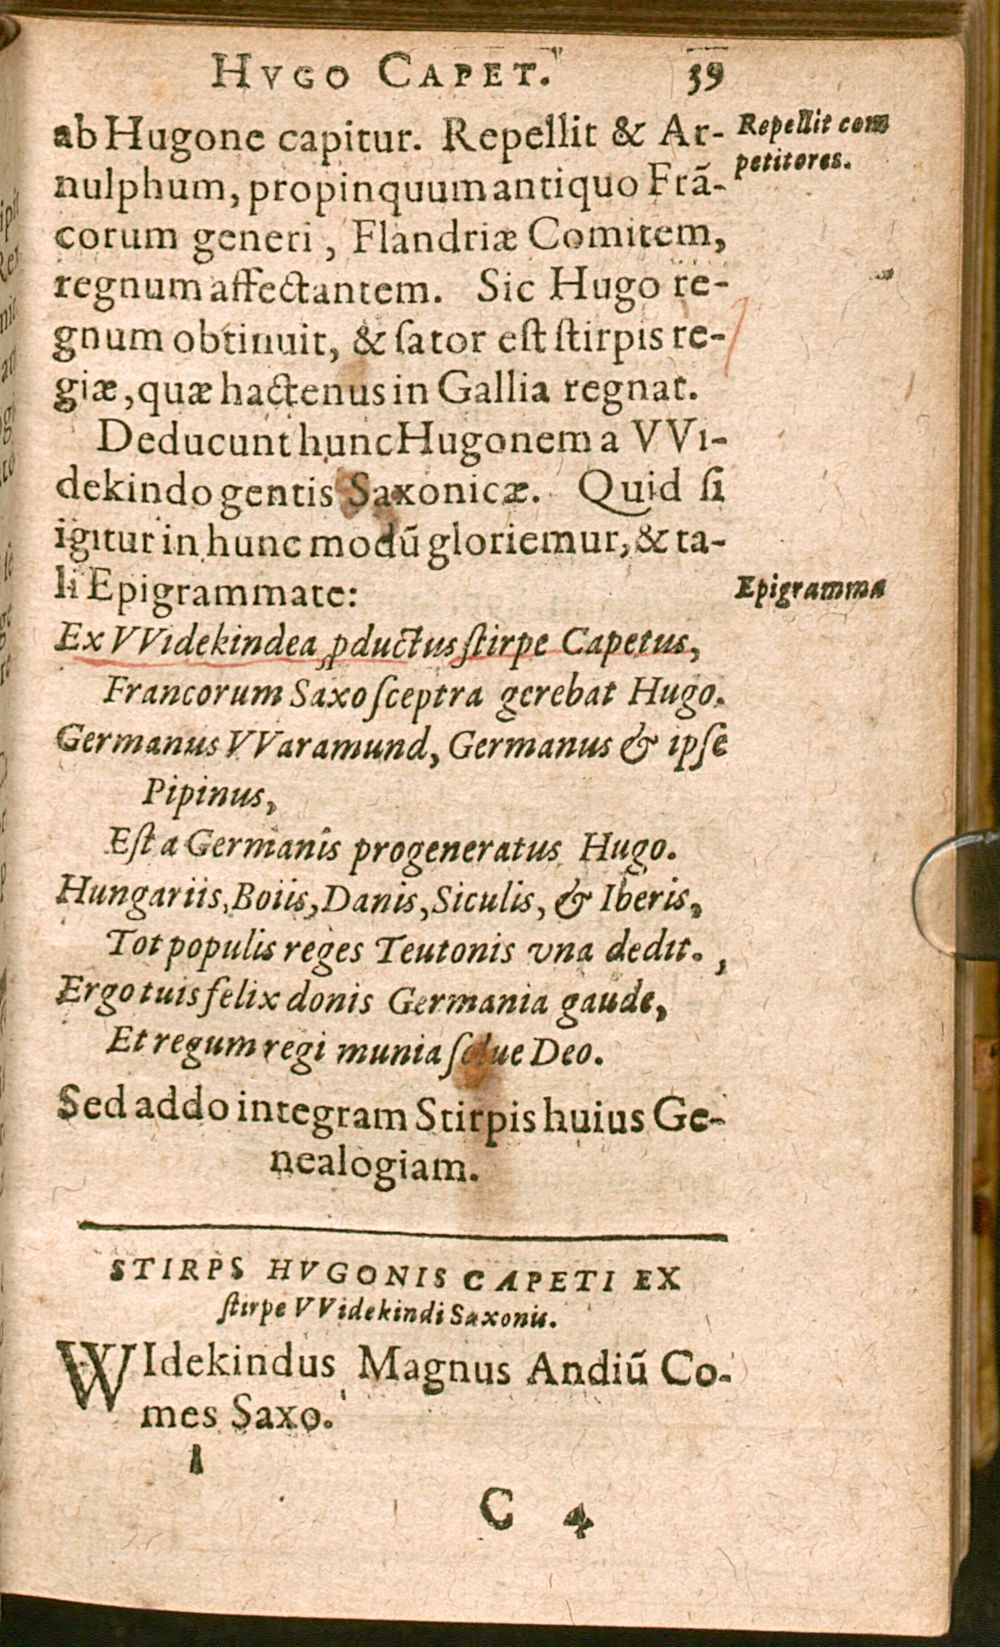 HVGO CAPET. 39
ab Hugone capitur. Repellit & Ar-
nulphum, propinquum antiquo Frã-
corum generi, Flandriæ Comitem,
regnum affectantem. Sic Hugo re-
gnum obtinuit, & ſator eſt ſtirpis re-
giæ, quæ hactenus in Gallia regnat.
Deducunt hunc Hugonem a VVi-
dekindo gentis Saxonicæ. Quid ſi
igitur in hunc modũ gloriemur, & ta-
li Epigrammate:
Ex VVidekindea ꝓductus ſtirpe Capetus,
Francorum Saxo ſceptra gerebat Hugo.
Germanus VVaramund, Germanus & ipſe
Pipinus,
Eſt a Germanis progeneratus Hugo.
Hungariis, Boiis, Danis, Siculis, & Iberis,
Tot populis reges Teutonis vna dedit.,
Ergo tuis felix donis Germania gaude,
Et regum regi munia ſolue Deo.
Sed addo integram Stirpis huius Ge-
nealogiam.
STIRPS HVGONIS CAPETI EX
ſtirpe VVidekindi Saxonis.
WIdekindus Magnus Andiũ Co-
mes Saxo.
C 4
Repellit com
petitores.
Epigramma